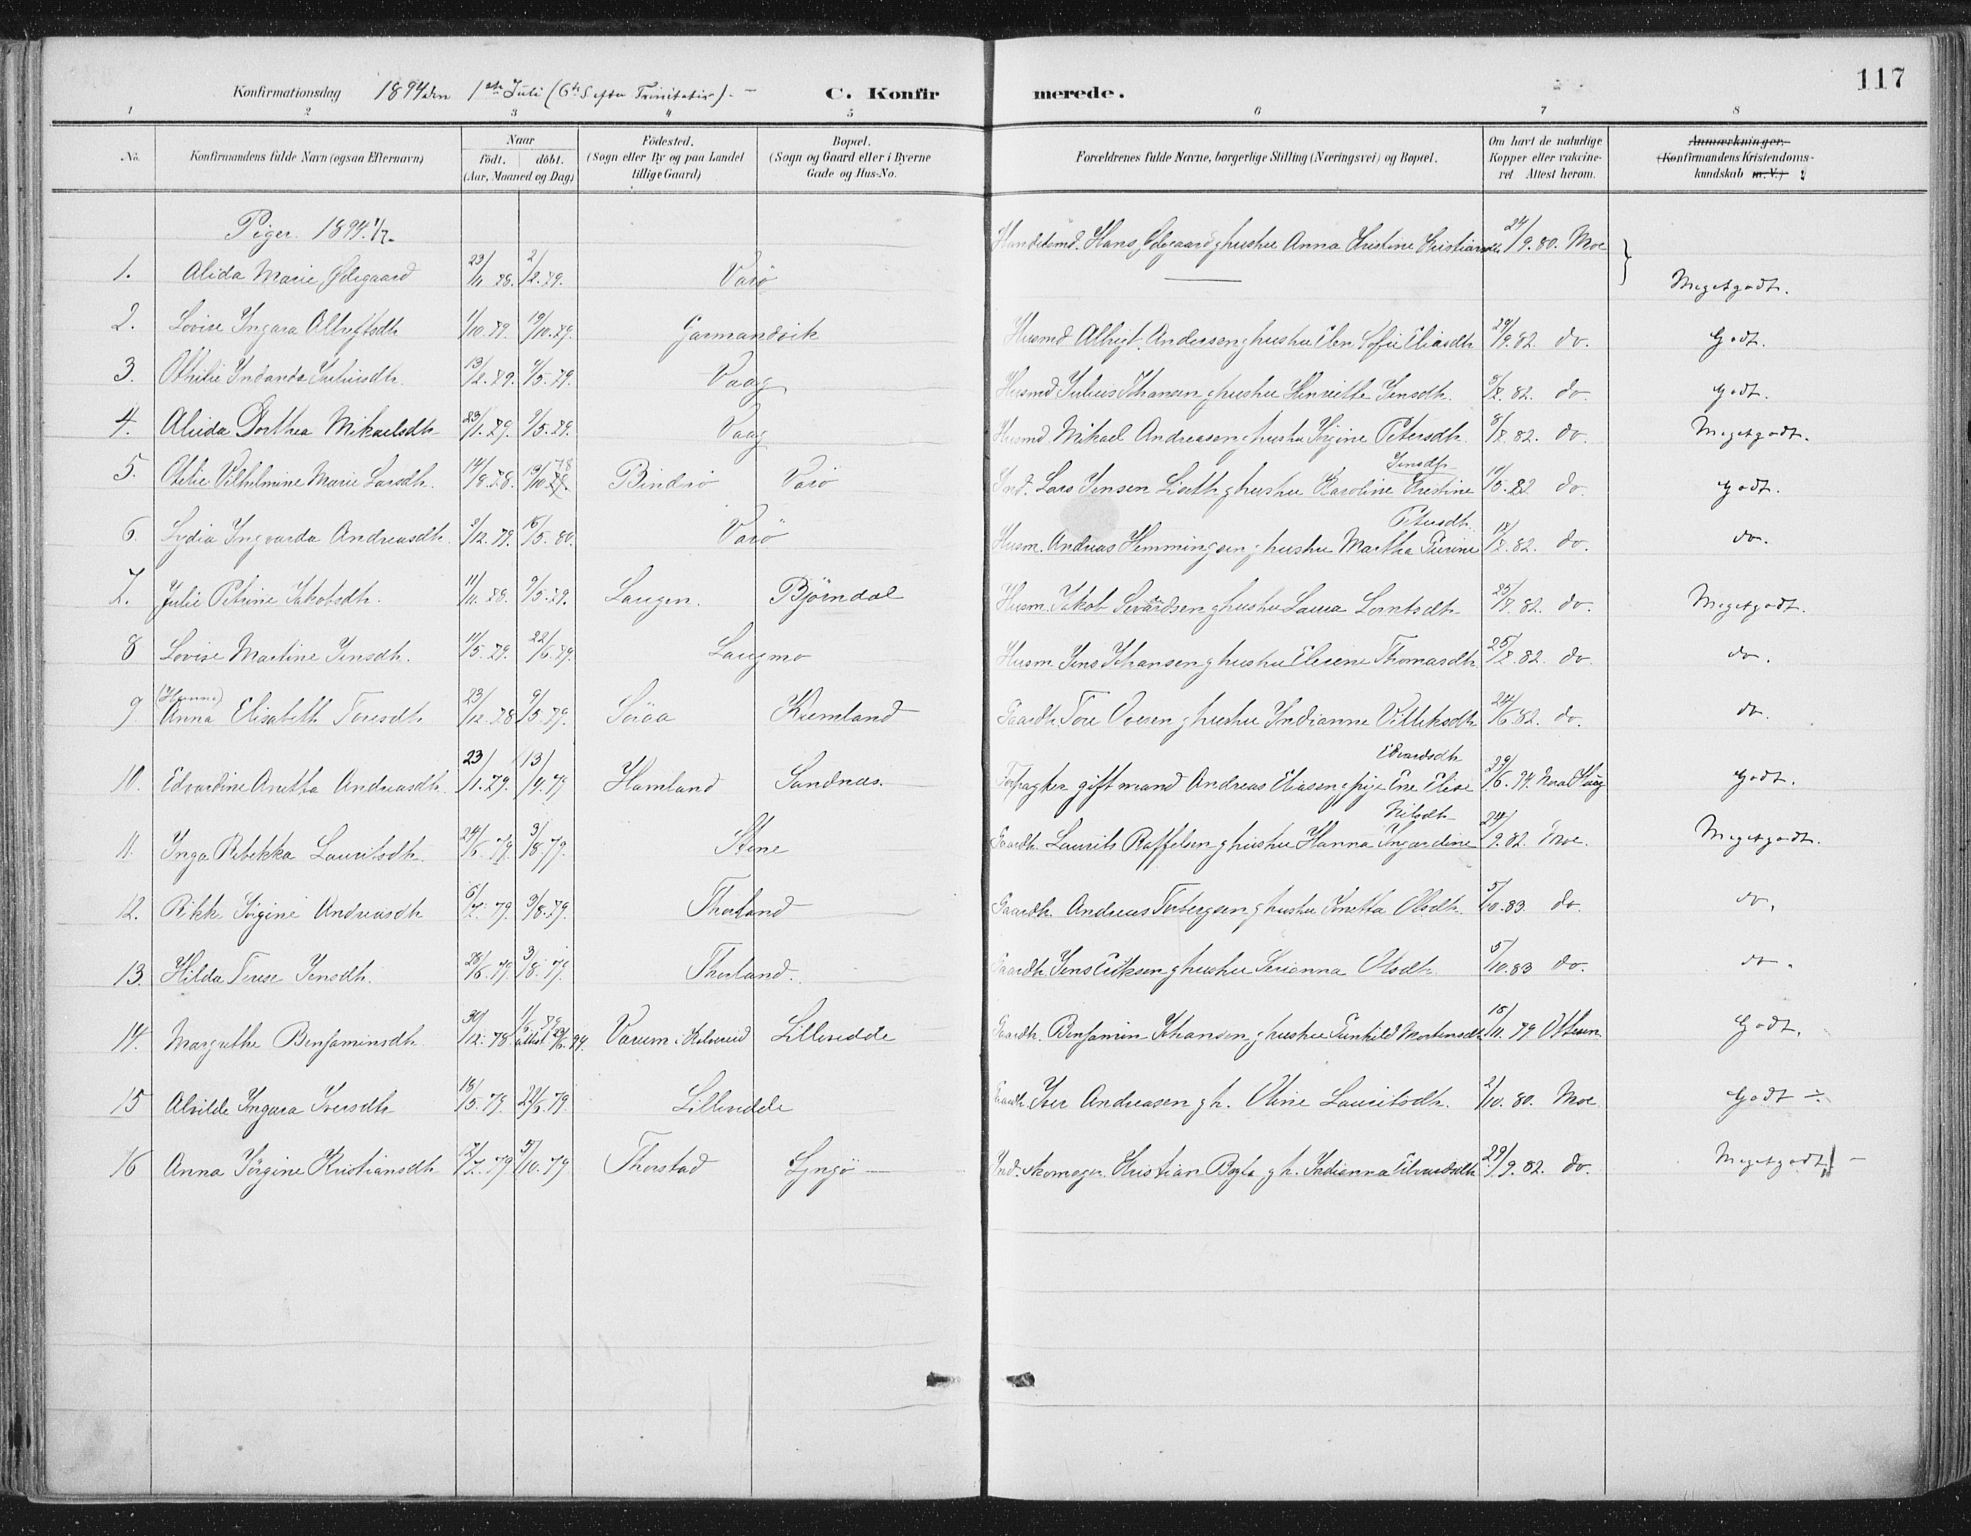 117
Konfirmationsdag 1894 den 1ste Juli (6te S. efter Trinitatis). — C. Konfirmerede.
1 2 3 4 5 6 7 8
No. Konfirmandens fulde Navn (ogsaa Efternavn) Naar født. døbt. (Aar, Maaned og Dag) Födested. (Sogn eller By og paa Landet tillige Gaard) Bopæl. (Sogn og Gaard eller i Byerne Gade og Hus-No. Forældrenes fulde Navne, borgerlige Stilling (Næringsvei) og Bopæl. Om havt de naturlige Kopper eller vaccineret Attest herom. Anmærkninger. (Konfirmandens Kristendomskundskab m.V.)
Piger 1894 1/7.
1. Alida Marie Ødegaard 23/11 78. 2/2.79. Varø Handelsmd. Hans Ødegaard g hustru Anna Kristine 24/9.80. Moe Megetgodt.
2. Lovise Ingara 1/10.79 19/10.79. Garmandsvik Husmd Andersen g hustru Elen Sofie Eliasdtr 29/9.82. do. Godt.
3. Othilie Juliusdtr. 13/2.79. 4/5.79. Vaag Husmd Julius Johansen g hustru Henriette Jensdtr. 82. do. Godt.
4. Alida Dorthea Mikaelsdtr 23/1.79. 4/5.79. Vaag Husmd Mikael Andreasen g hustru Jørgine Petersdtr. 82. do. Megetgodt.
5. Otelie Vilhelmine Marie Larsdtr. 14/8.78. 13/10.78 Bindø Varø Ind. Lars Jensen g hustru Karoline Kristine Jensdtr 14/5.82 do. Godt.
6. Lydia Ingvarda Andreasdtr. 9/12.79. 16/5.80. Varö Husm. Andreas Hemmingsen g hustru Martha Petersdtr. 82. do. do.
7. Julie Petrine Jakobsdtr. 11/11.78. 4/5.79. Laugen. Björndal Husm. Jakob g hustru Laura Lorntsdtr 82. do. Megetgodt.
8 Lovise Martine Jensdtr. 11/5.79. 22/6.79. Laugmo Husm. Jens Johansen g hustru Thomasdtr 82. do do.
9. (Hanna) Anna Elisabeth Toresdtr 23/12.78 4/5.79. Söraa Kvemland Gaardb. Tore g hustru Indianne 24/6.82. do. do.
10. Edvardine Anetta Andreasdtr. 23/1.79. 13/4.79 Hamland Sandnæs. Forpagter gift mand Andreas Eliasen Elise Edvardsdtr 29/6.94. Godt.
11. Inga Rebekka Lauritsdtr. 24/6.79. 3/8.79. Stene Gaardb. Laurits Raffelsen g hustru Hanna Ingardine Nilsdtr 29/9.82. Moe. Megetgodt.
12. Rikke Jørgine Andreasdtr 6/7.79. 3/8.79. Thorland Gaardb. Andreas Torbergsen g hustru Jonetta Olsdtr. 5/10.83. do. do.
13. Hilda Terese Jensdtr. 28/6.79 3/8.79. Thorland. Gaardb. Jens Eriksen g hustru Serianna Olsdtr. 5/10.83 do. do.
14. Margrethe Benjaminsdtr. 30/12.78. 1/6.79 attest 94. Varum i Kolvereid Lillevedde Gaardb. Benjamin Johansen g hustru Gunhild Mortensdtr. 18/11.79. Ottesen Godt.
15 Alvilde Ingara Iversdtr 18/5.79 22/6.79. Lillevedde Gaardb. Iver Andreasen g h. Oline Lauritsdtr. 2/10.80. Moe. Godt ÷
16 Anna Jörgine Kristiansdtr 12/7.79 5/10.79 Thorstad Lyngö — Ind. skomager Kristian g h. Indianna Edvardsdtr 29/9.82. do. Megetgodt —